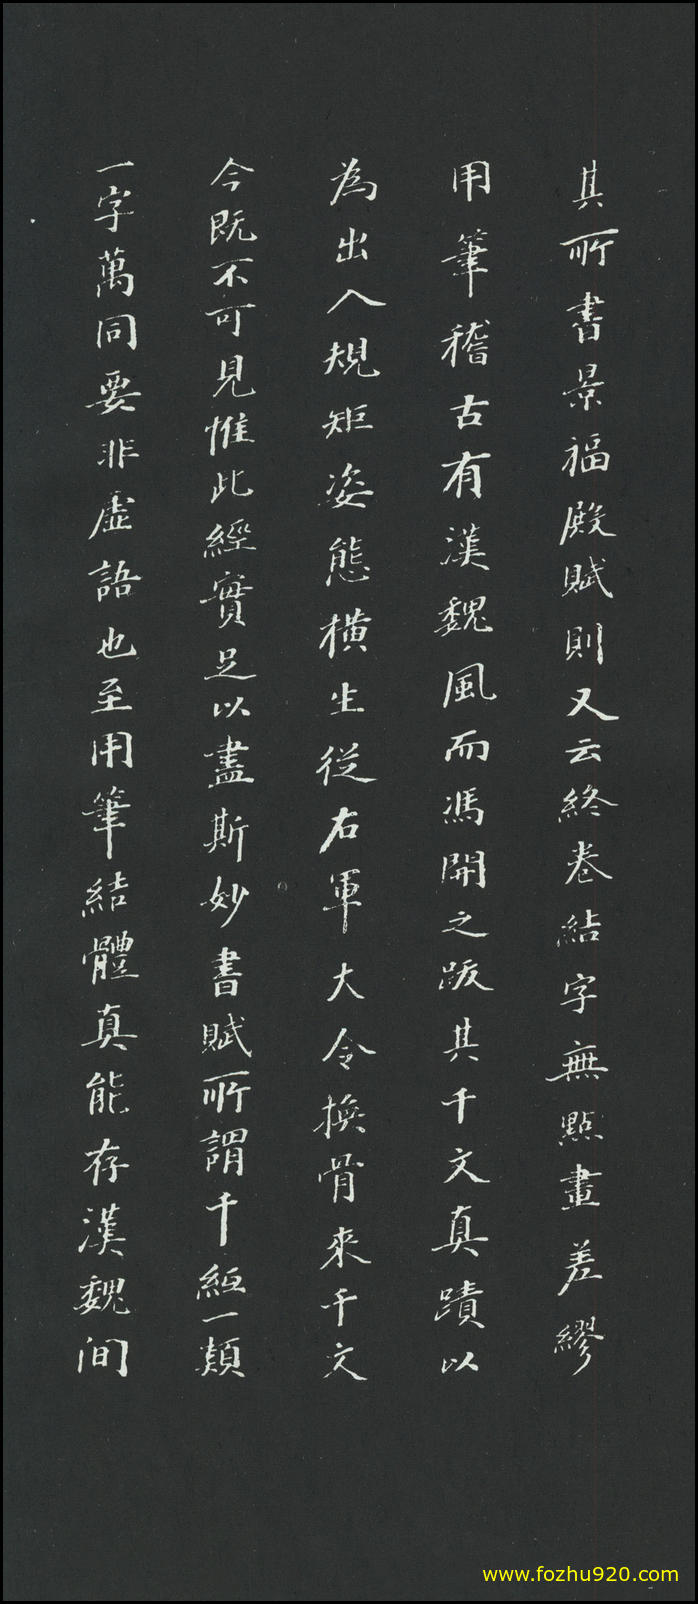 其所書景福殿賦則又云終卷結字無點畫差繆
用筆稽古有漢魏風而馮開之跋其千文真蹟以
為出入規矩姿態橫生從右軍大令換骨來千文
今既不可見惟此經實足以盡斯妙書賦所謂千絙一類
一字萬同要非虛語也至用筆結體真能存漢魏間
www.fozhu920.com